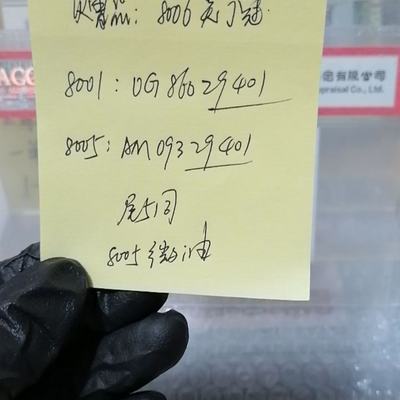 8006 无
8001: UG 86029401
8005: AM 09329401
尾5同
8005微油
有限公司
praisal Co., Ltd.